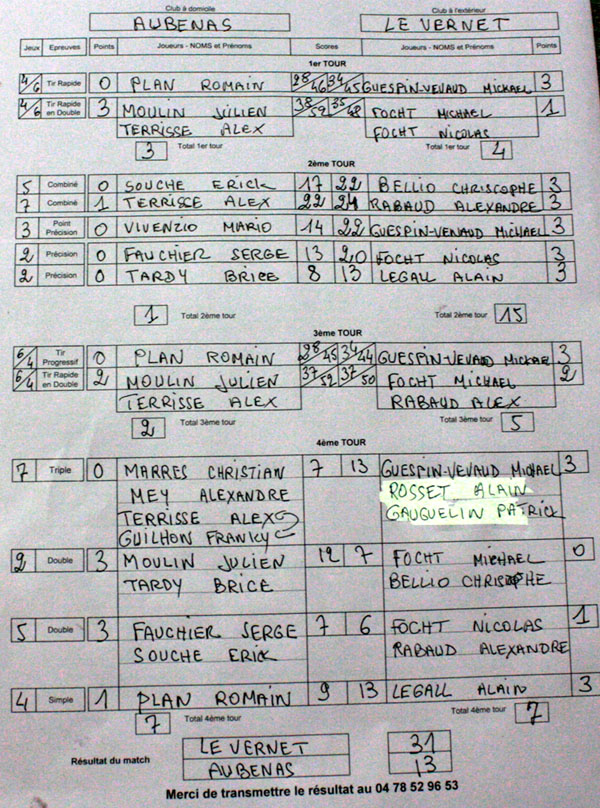 Club à domicile Club à l'extérieur
AUBENAS LE VERNET
Jeux Epreuves Points Joueurs - NOMS et Prénoms Scores Joueurs - NOMS et Prénoms Points
1er TOUR
4/6 Tir Rapide 0 PLAN ROMAIN 28/46 34/45 GUESPIN-VEVAUD MICKAEL 3
4/6 Tir Rapide en Double 3 MOULIN JULIEN 38/52 35/48 FOCHT MICHAEL 1
TERRISSE ALEX FOCHT NICOLAS
3 Total 1er tour Total 1er tour 4
2ème TOUR
5 Combiné 0 SOUCHE ERICK 17 22 BELLIO CHRISCOPHE 3
7 Combiné 1 TERRISSE ALEX 22 24 RABAUD ALEXANDRE 3
3 Point Précision 0 VIVENZIO MARIO 14 22 GUESPIN-VENAUD MICHAEL 3
2 Précision 0 FAUCHIER SERGE 13 20 FOCHT NICOLAS 3
2 Précision 0 TARDY BRICE 8 13 LEGALL ALAIN 3
1 Total 2ème tour Total 2ème tour 15
3ème TOUR
6/4 Tir Progressif 0 PLAN ROMAIN 28/45 34/44 GUESPIN-VEVAUD MICKAE 3
6/4 Tir Rapide en Double 2 MOULIN JULIEN 37/52 37/50 FOCHT MICHAEL 2
TERRISSE ALEX RABAUD ALEX
2 Total 3ème tour Total 3ème tour 5
4ème TOUR
7 Triple 0 MARRES CHRISTIAN 7 13 GUESPIN-VEVAUD MICHAEL 3
MEY ALEXANDRE ROSSET ALAIN
TERRISSE ALEX GAUQUELIN PATRICK
GUILHON FRANKY
2 Double 3 MOULIN JULIEN 12 7 FOCHT MICHAEL 0
TARDY BRICE BELLIO CHRISTOPHE
5 Double 3 FAUCHIER SERGE 7 6 FOCHT NICOLAS 1
SOUCHE ERICK RABAUD ALEXANDRE
4 Simple 1 PLAN ROMAIN 9 13 LEGALL ALAIN 3
7 Total 4ème tour Total 4ème tour 7
Résultat du match LE VERNET 31
AUBENAS 13
Merci de transmettre le résultat au 04 78 52 96 53